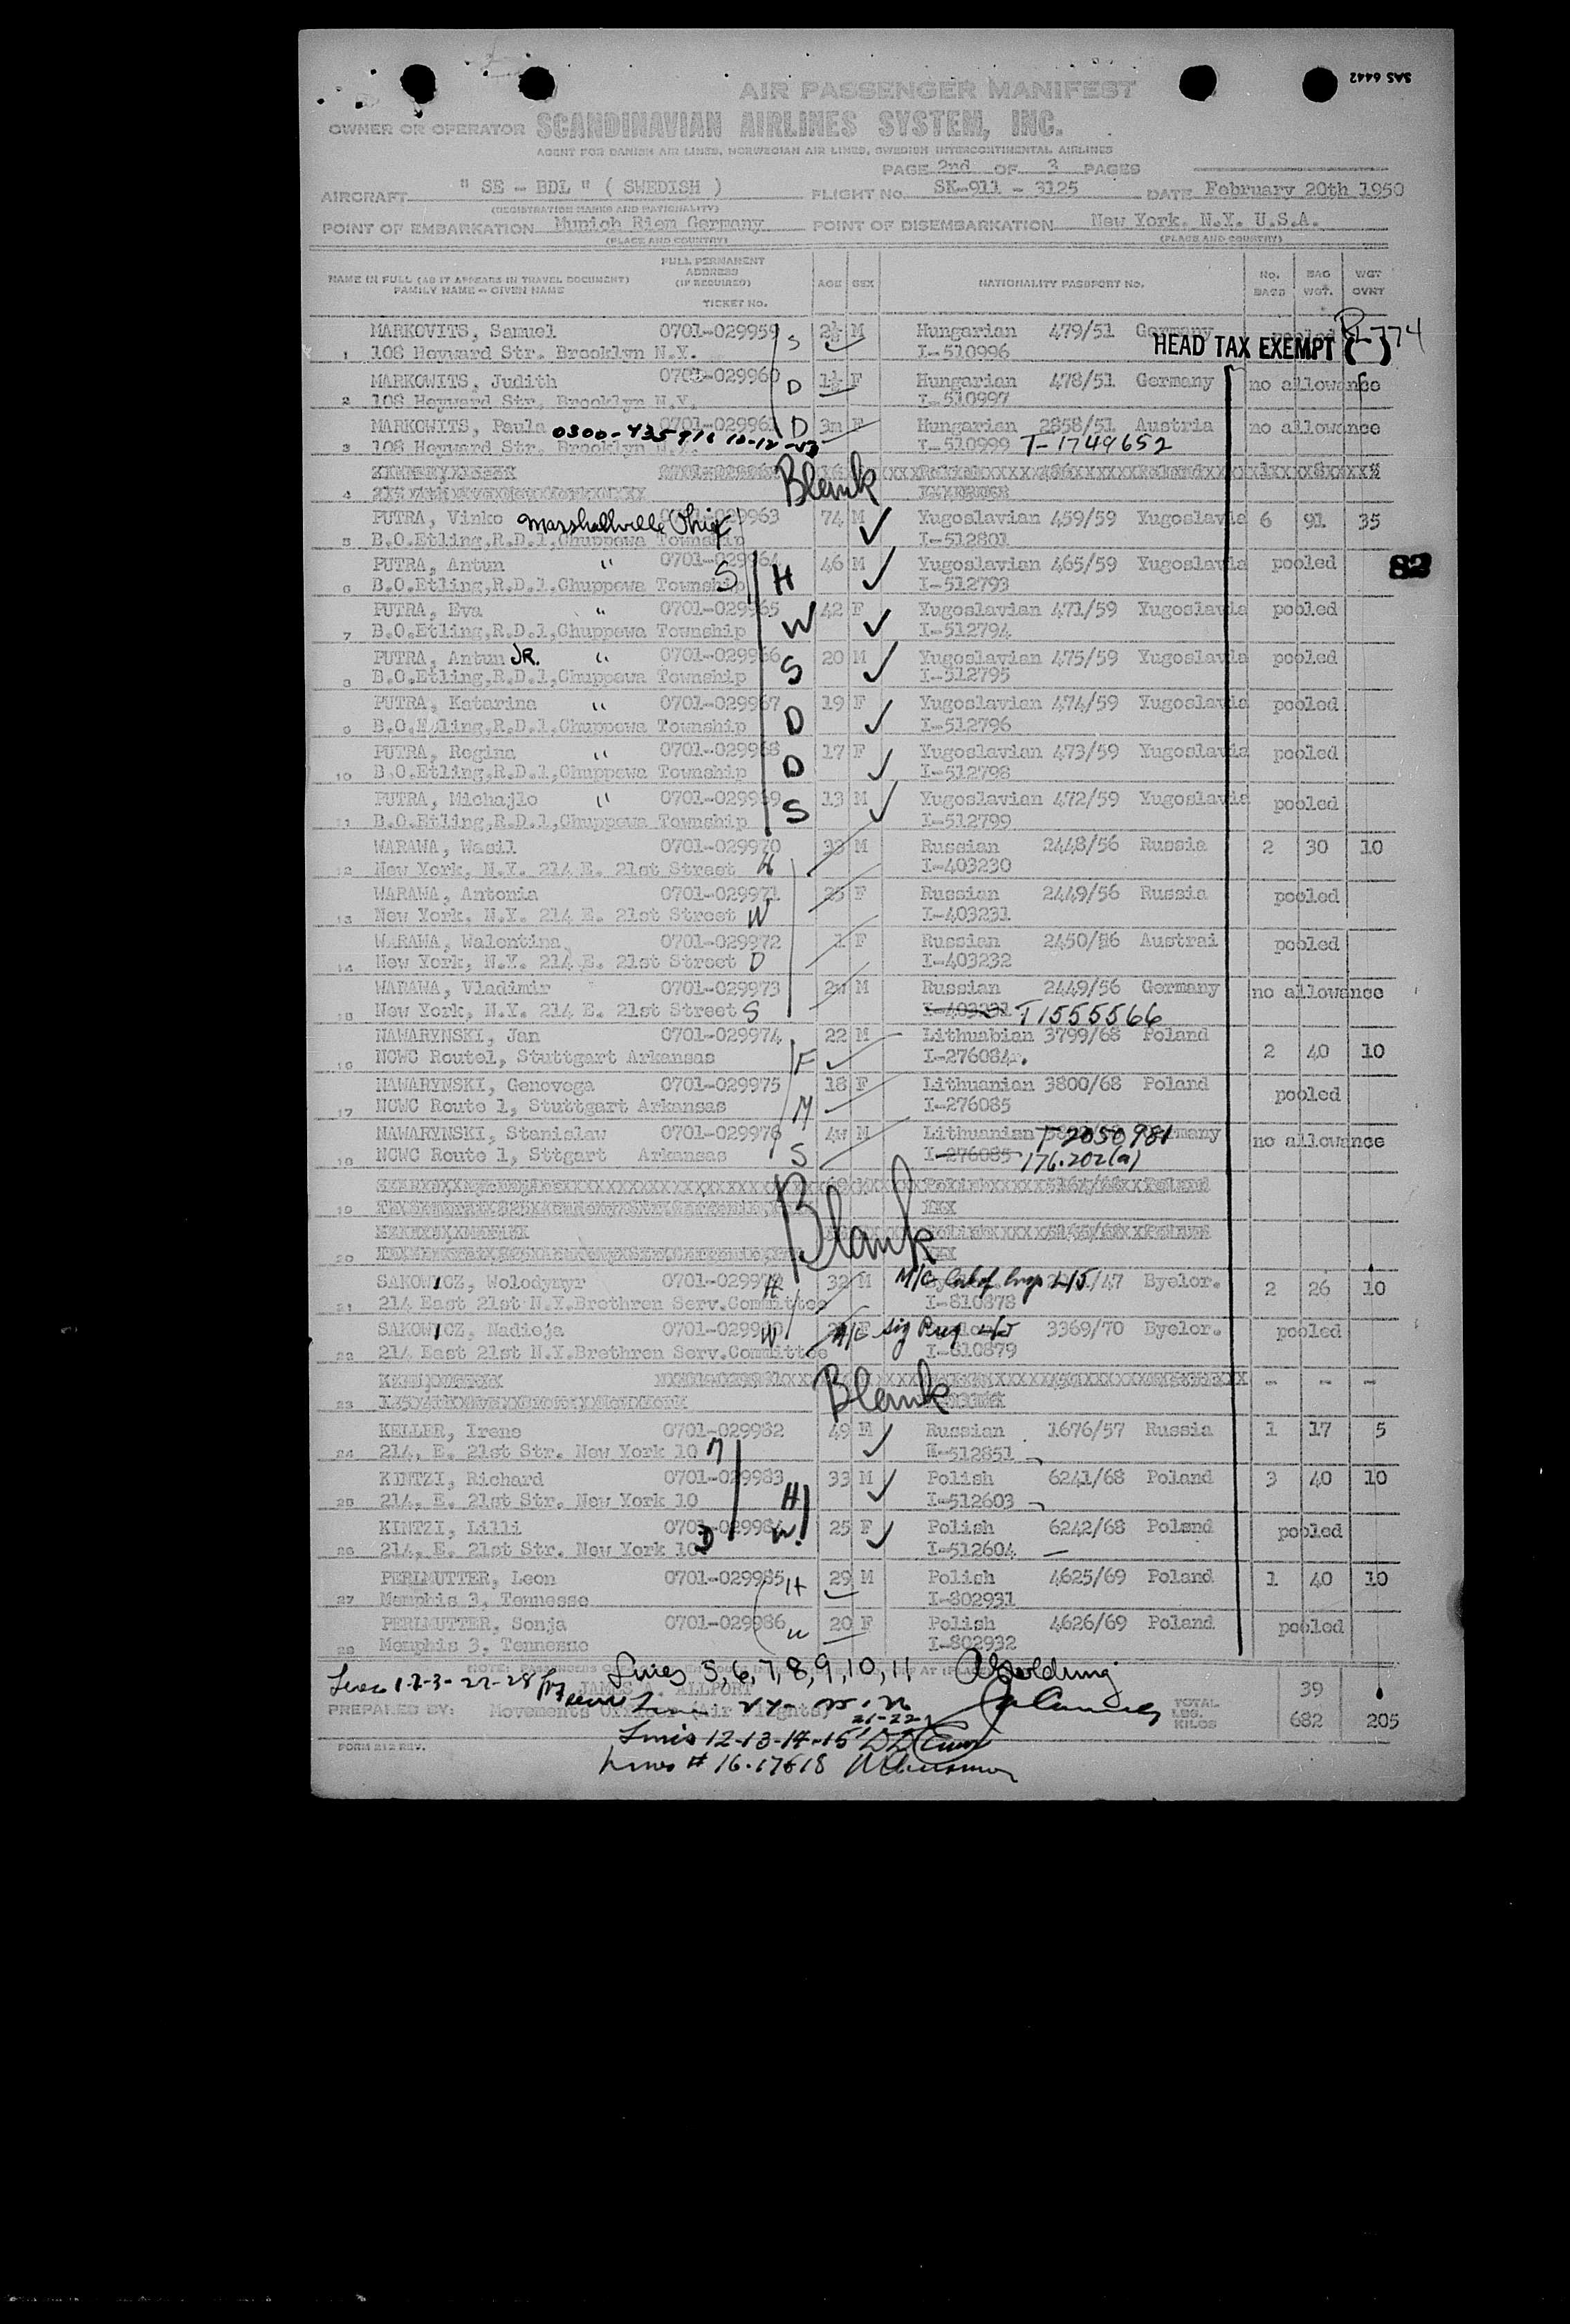 SAS 6442
AIR PASSENGER MANIFEST
OWNER OR OPERATOR SCANDINAVIAN AIRLINES SYSTEM, INC.
AGENT FOR DANISH AIR LINES, NORWEGIAN AIR LINES, SWEDISH INTERCONTINENTAL AIRLINES
PAGE 2nd OF 3 PAGES
AIRCRAFT " SE - BDL " ( SWEDISH ) FLIGHT No. SK-911 - 3125 DATE February 20th 1950
(REGISTRATION MARKS AND NATIONALITY)
POINT OF EMBARKATION Munich Riem Germany POINT OF DISEMBARKATION New York. N.Y. U.S.A.
(PLACE AND COUNTRY) (PLACE AND COUNTRY)
NAME IN FULL (AS IT APPEARS IN TRAVEL DOCUMENT) FAMILY NAME - GIVEN NAME FULL PERMANENT ADDRESS (IF REQUIRED) TICKET No. AGE SEX NATIONALITY PASSPORT No. No. BAGS BAG WGT. WGT OVNT
MARKOVITS, Samuel 0701-029959 S 2½ M Hungarian 479/51 Germany pooled
1 108 Heyward Str. Brooklyn N.Y. I-510996 HEAD TAX EXEMPT
MARKOWITS, Judith 0701-029960 D 1½ F Hungarian 478/51 Germany no allowance
2 108 Heyward Str. Brooklyn N.Y. I-510997
MARKOWITS, Paula D 3m F Hungarian 2858/51 Austria no allowance
3 108 Heyward Str. Brooklyn N.Y. I-510999 T-1749652
Blank
4
PUTRA, Vinko Marshallville Ohio 74 M Yugoslavian 459/59 Yugoslavia 6 91 35
5 B.O.Etling,R.D.1,Chuppewa Township I-512801
PUTRA, Antun " 0701-029964 S H 46 M Yugoslavian 465/59 Yugoslavia pooled 82
6 B.O.Etling,R.D.1,Chuppewa Township I-512793
PUTRA, Eva " 0701-029965 W 42 F Yugoslavian 471/59 Yugoslavia pooled
7 B.O.Etling,R.D.1,Chuppewa Township I-512794
PUTRA, Antun JR. " 0701-029966 S 20 M Yugoslavian 475/59 Yugoslavia pooled
8 B.O.Etling,R.D.1,Chuppewa Township I-512795
PUTRA, Katarina " 0701-029967 D 19 F Yugoslavian 474/59 Yugoslavia pooled
9 B.O.Etling,R.D.1,Chuppewa Township I-512796
PUTRA, Regina " 0701-029968 D 17 F Yugoslavian 473/59 Yugoslavia pooled
10 B.O.Etling,R.D.1,Chuppewa Township I-512798
PUTRA, Michajlo " 0701-029969 S 13 M Yugoslavian 472/59 Yugoslavia pooled
11 B.O.Etling,R.D.1,Chuppewa Township I-512799
WARAWA, Wasil 0701-029970 33 M Russian 2448/56 Russia 2 30 10
12 New York, N.Y. 214 E. 21st Street H I-403230
WARAWA, Antonia 0701-029971 25 F Russian 2449/56 Russia pooled
13 New York. N.Y. 214 E. 21st Street W I-403231
WARAWA, Walentina 0701-029972 1 F Russian 2450/56 Austrai pooled
14 New York, N.Y. 214 E. 21st Street D I-403232
WARAWA, Vladimir 0701-029973 2w M Russian 2449/56 Germany no allowance
15 New York, N.Y. 214 E. 21st Street S I-403231 T1555566
NAWARYNSKI, Jan 0701-029974 22 M Lithuabian 3799/68 Poland 2 40 10
16 NCWC Route1, Stuttgart Arkansas F I-276084
NAWARYNSKI, Genovega 0701-029975 18 F Lithuanian 3800/68 Poland pooled
17 NCWC Route 1, Stuttgart Arkansas M I-276085
NAWARYNSKI, Stanislaw 0701-029976 4w M Lithuanian T-2050981 Germany no allowance
18 NCWC Route 1, Sttgart Arkansas S I-276085 176.202(a)
19
Blank
20
SAKOWICZ, Wolodymyr H 32 M /47 Byelor. 2 26 10
21 214 East 21st N.Y.Brethren Serv.Committee I-810878
SAKOWICZ, Nadieja W 3369/70 Byelor. pooled
22 214 East 21st N.Y.Brethren Serv.Committee I-810879
Blank - - -
23
KELLER, Irene 0701-029982 49 Russian 1676/57 Russia 1 17 5
24 214, E. 21st Str. New York 10 M I-512851
KINTZI, Richard 0701-029983 33 M Polish 6241/68 Poland 3 40 10
25 214, E. 21st Str. New York 10 H I-512603
KINTZI, Lilli 0701-029984 W. 25 F Polish 6242/68 Poland pooled
26 214, E. 21st Str. New York 10 D I-512604
PERLMUTTER, Leon 0701-029985 H 29 M Polish 4625/69 Poland 1 40 10
27 Memphis 3, Tennesse I-802931
PERLMUTTER, Sonja 0701-029986 20 F Polish 4626/69 Poland pooled
28 Memphis 3. Tennesse I-802932
Lines 5,6,7,8,9,10,11
Lines 1-2-3-27-28 JAMES A. ALLPORT 39
PREPARED BY: Movements Officer (Air Flights) 21-22 TOTAL LBS. KILOS 682 205
Lines 12-13-14-15
FORM 212 REV.
Lines # 16-17&18